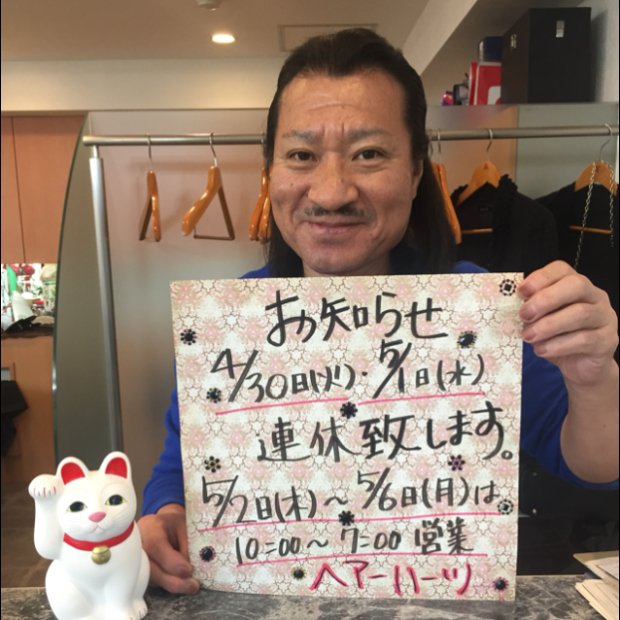 お知らせ
4/30日(火)・5/1日(水)
連休致します。
5/2日(木)〜5/6日(月)は
10:00〜7:00 営業
ヘアーハーツ